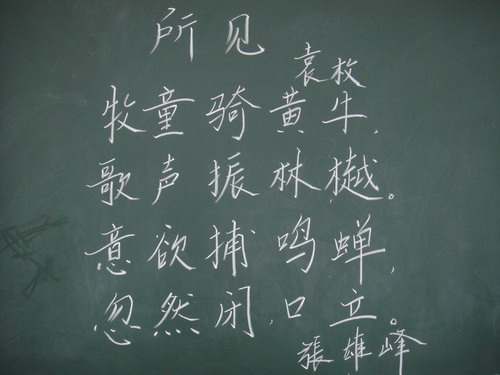 所见
袁枚
牧童骑黄牛,
歌声振林樾。
意欲捕鸣蝉,
忽然闭,口立。
張雄峰